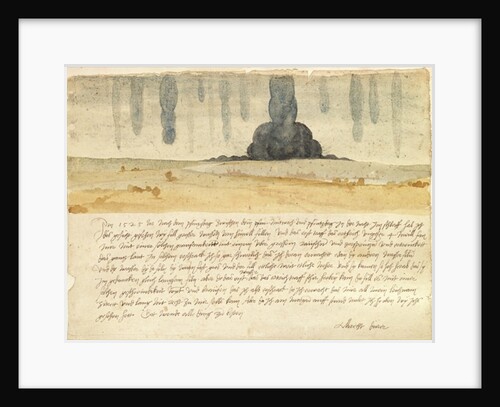 Im 1525 Jor nach dem pfinxstag zwischen dem mitwoch und pfintzdag in der nacht im schlaff hab ich
dis gesicht gesehen wy fill grosser wassern vom himell fillen Und das erst traff das erthrich ungefer 4 meill fan
mir mit einer solchen grausamkeitt mit einem uber grossem raüschn und zersprützn und ertrenckett
das gannz lant In solchem erschrack ich so gar schwerlich das ich doran erwachett e dan dy andern wasser filn
Und dy wasser dy do filn dy warn fast gros und der fill ettliche weit etliche neher und sy kamen so hoch herab das sy
im gedancken gleich langsam filn aber do das erst wasser das das ertrich traff schir herbey kam do fill es mit einer
solchen geschwindikeit wynt und braüsen das ich also erschrack do ich erwacht das mir all mein leichnam
zitrett und lang nit recht zu mir selbs kam Aber do ich am morgen auff stund molet ich hy oben wy ichs
gesehen hett Got wende alle ding zu besten
Albrecht dürer